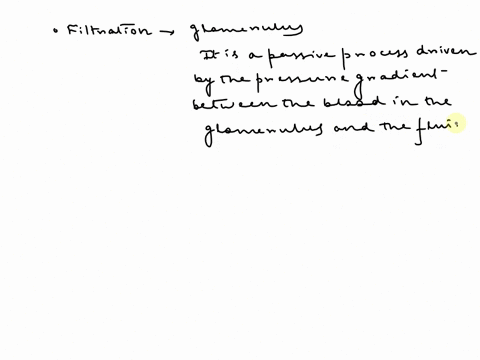 • Filtration → glomerulus
It is a passive process driven
by the pressure gradient
between the blood in the
glomerulus and the flui